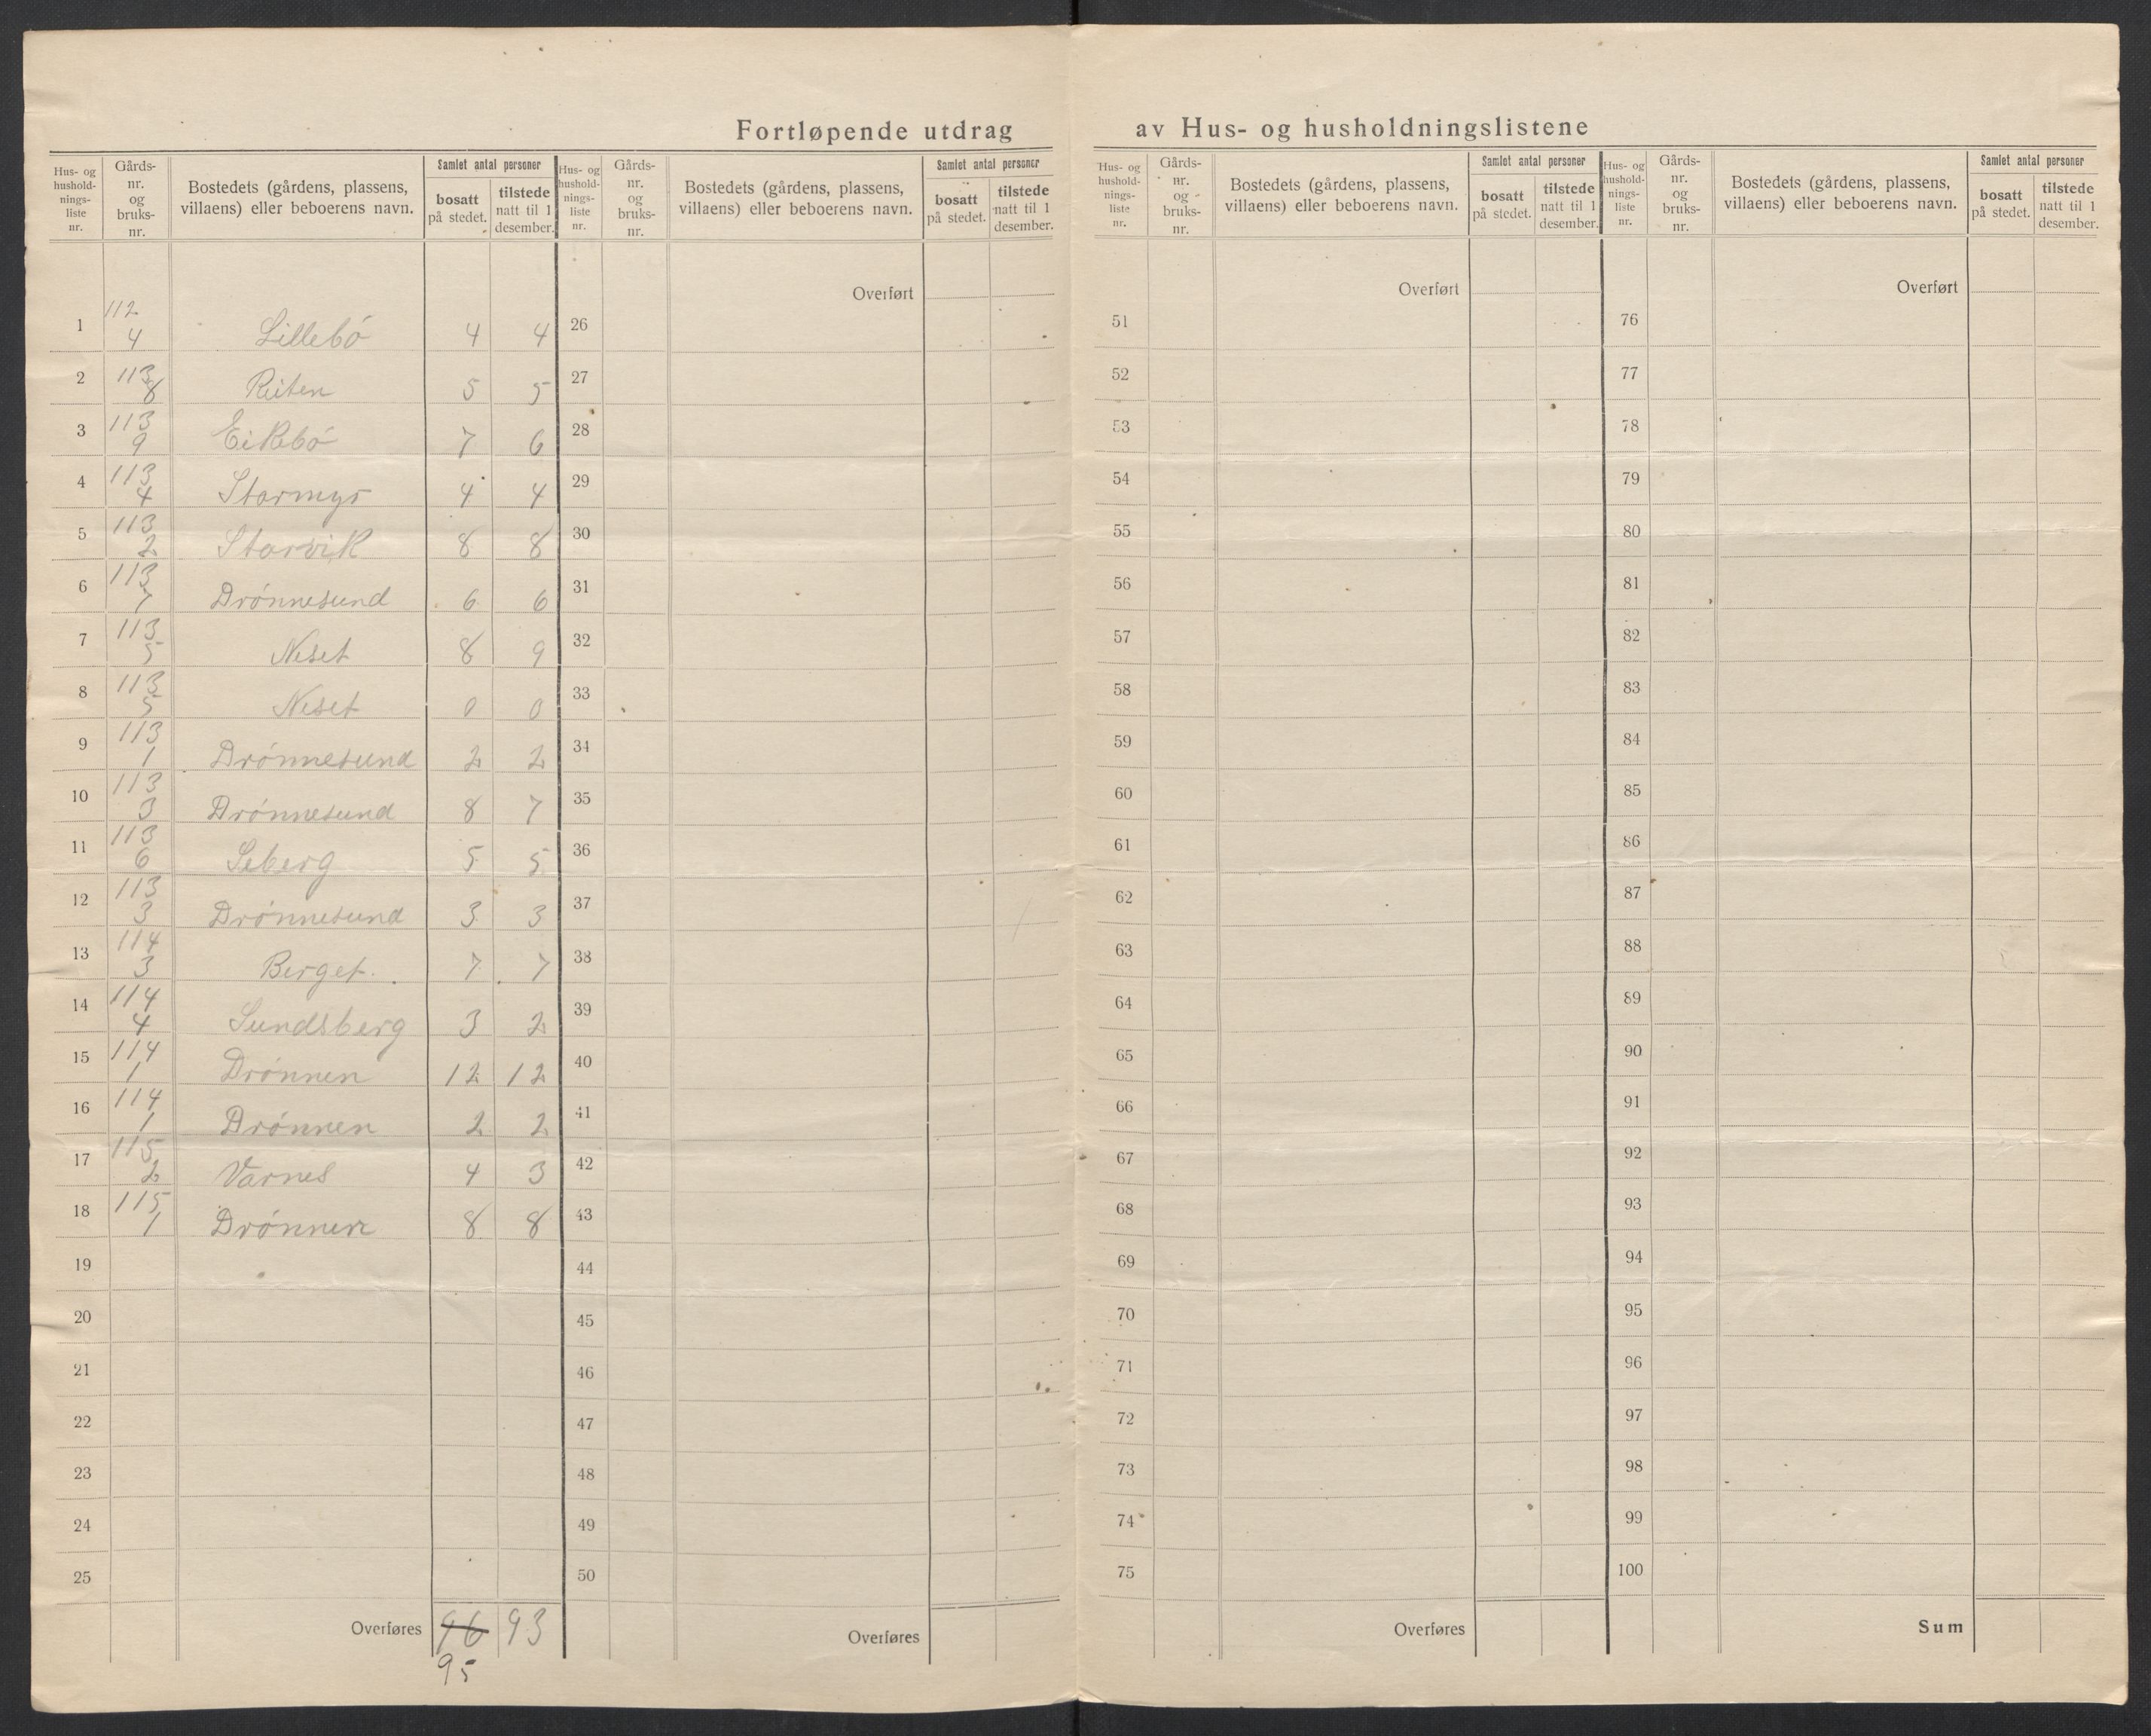 Fortløpende utdrag av Hus- og husholdningslistene
Hus- og hushold-nings-liste nr. | Gårds-nr. og bruks-nr. | Bostedets (gårdens, plassens, villaens) eller beboerens navn. | Samlet antal personer | bosatt på stedet. | tilstede natt til 1 desember.
Hus- og hushold-nings-liste nr. | Gårds-nr. og bruks-nr. | Bostedets (gårdens, plassens, villaens) eller beboerens navn. | Samlet antal personer | bosatt på stedet. | tilstede natt til 1 desember.
Hus- og hushold-nings-liste nr. | Gårds-nr. og bruks-nr. | Bostedets (gårdens, plassens, villaens) eller beboerens navn. | Samlet antal personer | bosatt på stedet. | tilstede natt til 1 desember.
Hus- og hushold-nings-liste nr. | Gårds-nr. og bruks-nr. | Bostedets (gårdens, plassens, villaens) eller beboerens navn. | Samlet antal personer | bosatt på stedet. | tilstede natt til 1 desember.
1 112 4 Lillebö 4 4
2 113 8 Reiten 5 5
3 113 9 Eikebö 7 6
4 113 4 Stormyr 4 4
5 113 2 Storvik 8 8
6 113 7 Drönnesund 6 6
7 113 5 Neset 8 9
8 113 5 Neset 0 0
9 113 1 Drönnesund 2 2
10 113 3 Drönnesund 8 7
11 113 6 Seberg 5 5
12 113 3 Drönnesund 3 3
13 114 3 Berget. 7 7
14 114 4 Sundsberg 3 2
15 114 1 Drönnen 12 12
16 114 1 Drönnen 2 2
17 115 2 Varnes 4 3
18 115 1 Drönnen 8 8
19
20
21
22
23
24
25
Overføres 96 93
95
Overført
26
27
28
29
30
31
32
33
34
35
36
37
38
39
40
41
42
43
44
45
46
47
48
49
50
Overføres
Overført
51
52
53
54
55
56
57
58
59
60
61
62
63
64
65
66
67
68
69
70
71
72
73
74
75
Overføres
Overført
76
77
78
79
80
81
82
83
84
85
86
87
88
89
90
91
92
93
94
95
96
97
98
99
100
Sum